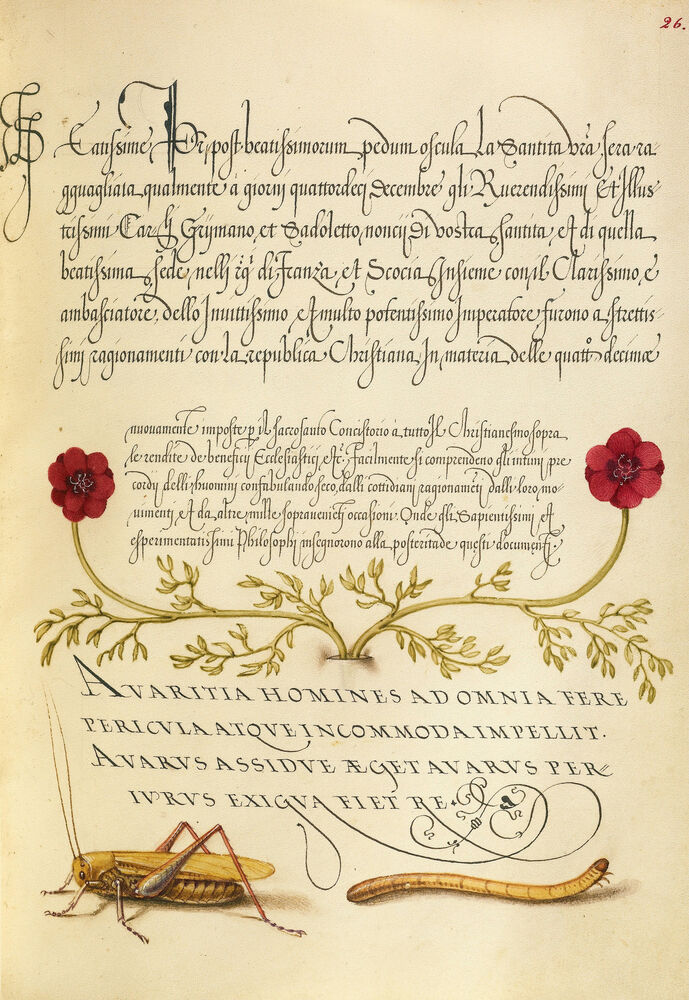 26.
Eatissime Pr, post beatissimorum pedum oscula La Santita vra sera ra-
gguagliata qualmente a giorni quattordeci Decembre gli Ruerendissimi Et Illus-
trissimi Car Grymano, et Sadoletto, noncij Di vostra santita, et di quella
beatissima sede, nelli di Franza, et Scocia Insieme con il Clarissimo, e
ambasciatore dello Inuittissimo et multo potentissimo Imperatore furono a strettis-
simi ragionamenti con La republica Christiana, In materia delle quatto decime
nuouamente imposte p il sacrosanto Concistorio a tutto Il Christianesmo sopra
le rendite de beneficij Ecclesiastici, etc. Facilmente si comprendeno gli intimi pre
cordij delli huomini confabulando seco, dalli cottidiani ragionameti dalli loro, mo-
uimenti, et da altre mille soprauenieti occasioni. Onde gli Sapientissimi et
esperimentatissimi Philosophi insegnorono alla posteritade questi documenti.
AVARITIA HOMINES AD OMNIA FERE
PERICVLA ATQVE INCOMMODA IMPELLIT.
AVARVS ASSIDVE ÆGET AVARVS PER-
IVRVS EXIGVA FIET RE.